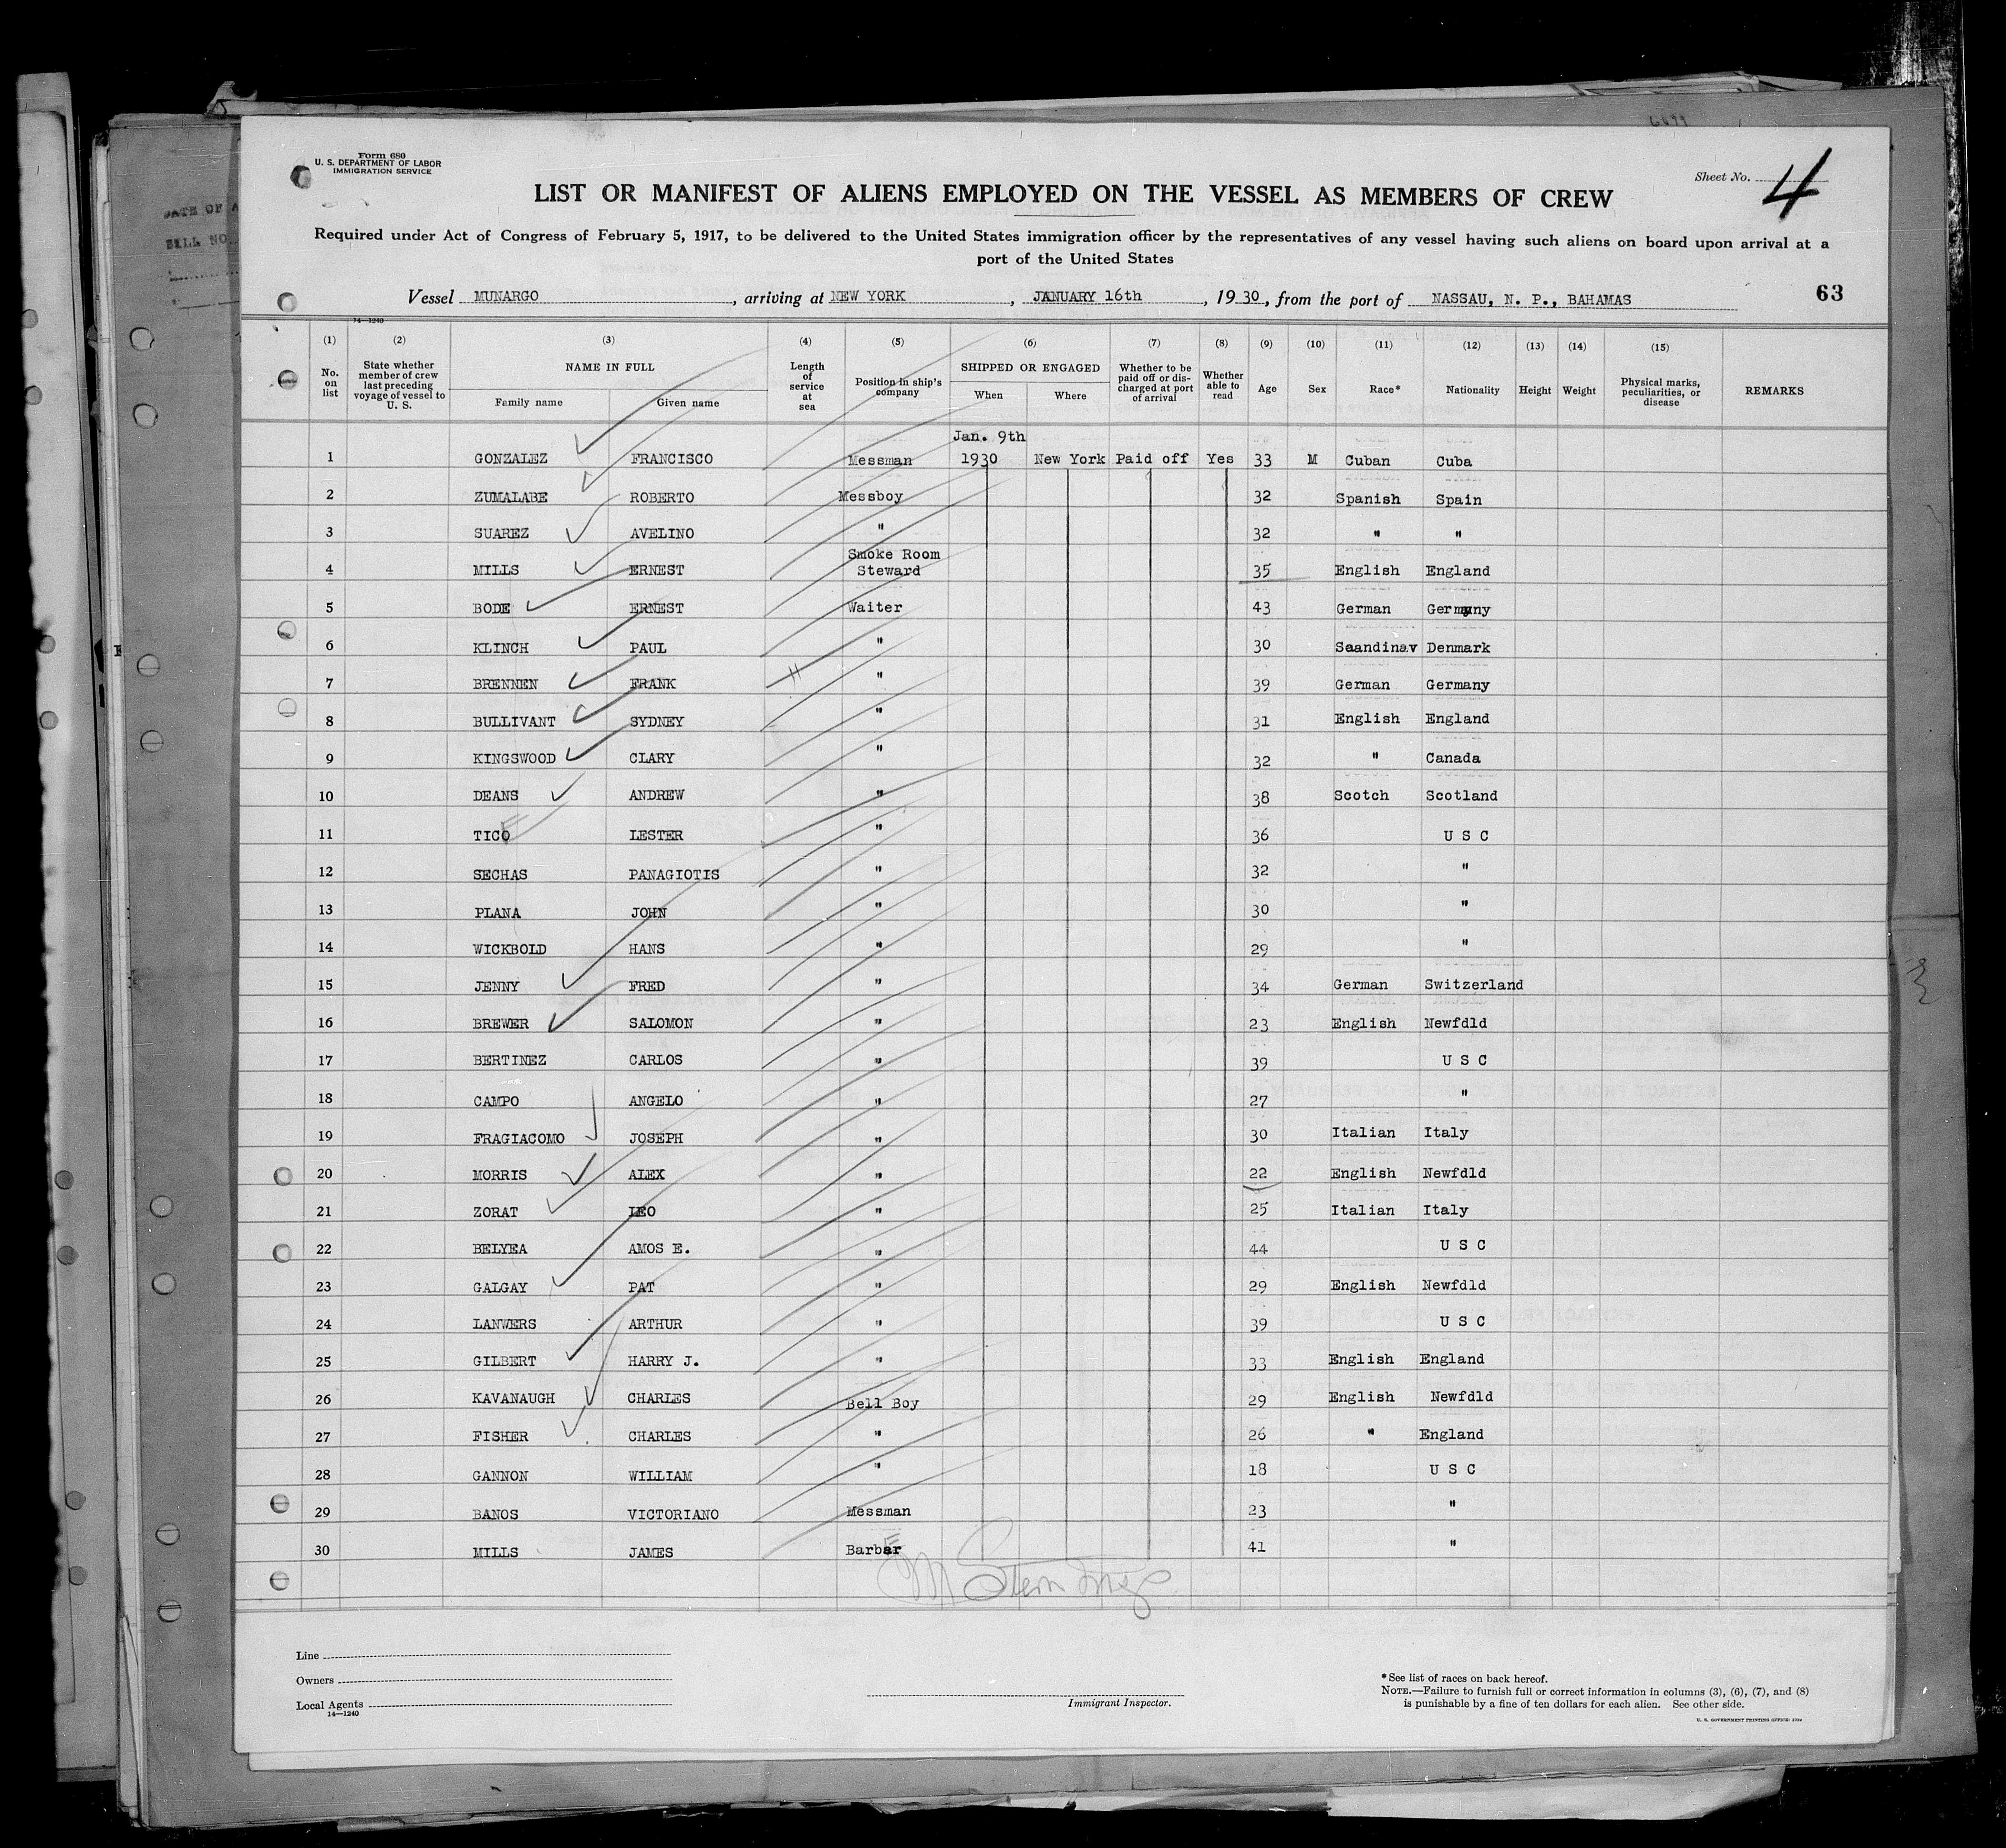 Form 680
U. S. DEPARTMENT OF LABOR
IMMIGRATION SERVICE
Sheet No. 4
LIST OR MANIFEST OF ALIENS EMPLOYED ON THE VESSEL AS MEMBERS OF CREW
Required under Act of Congress of February 5, 1917, to be delivered to the United States immigration officer by the representatives of any vessel having such aliens on board upon arrival at a
port of the United States
Vessel MUNARGO, arriving at NEW YORK, JANUARY 16th, 1930, from the port of NASSAU, N. P., BAHAMAS
63
14—1240
(1) (2) (3) (4) (5) (6) (7) (8) (9) (10) (11) (12) (13) (14) (15)
No. on list State whether member of crew last preceding voyage of vessel to U. S. NAME IN FULL Family name Given name Length of service at sea Position in ship's company SHIPPED OR ENGAGED When Where Whether to be paid off or discharged at port of arrival Whether able to read Age Sex Race* Nationality Height Weight Physical marks, peculiarities, or disease REMARKS
Jan. 9th
1 GONZALEZ FRANCISCO Messman 1930 New York Paid off Yes 33 M Cuban Cuba
2 ZUMALABE ROBERTO Messboy 32 Spanish Spain
3 SUAREZ AVELINO " 32 " "
4 MILLS ERNEST Smoke Room Steward 35 English England
5 BODE ERNEST Waiter 43 German Germany
6 KLINCH PAUL " 30 Scandinav Denmark
7 BRENNEN FRANK " 39 German Germany
8 BULLIVANT SYDNEY " 31 English England
9 KINGSWOOD CLARY " 32 " Canada
10 DEANS ANDREW " 38 Scotch Scotland
11 TICO LESTER " 36 U S C
12 SECHAS PANAGIOTIS " 32 "
13 PLANA JOHN " 30 "
14 WICKBOLD HANS " 29 "
15 JENNY FRED " 34 German Switzerland
16 BREWER SALOMON " 23 English Newfdld
17 BERTINEZ CARLOS " 39 U S C
18 CAMPO ANGELO " 27 "
19 FRAGIACOMO JOSEPH " 30 Italian Italy
20 MORRIS ALEX " 22 English Newfdld
21 ZORAT LEO " 25 Italian Italy
22 BELYEA AMOS E. " 44 U S C
23 GALGAY PAT " 29 English Newfdld
24 LANWERS ARTHUR " 39 U S C
25 GILBERT HARRY J. " 33 English England
26 KAVANAUGH CHARLES Bell Boy 29 English Newfdld
27 FISHER CHARLES " 26 " England
28 GANNON WILLIAM " 18 U S C
29 BANOS VICTORIANO Messman 23 "
30 MILLS JAMES Barber 41 "
Line
Owners
Local Agents
14—1240
Immigrant Inspector.
*See list of races on back hereof.
NOTE.—Failure to furnish full or correct information in columns (3), (6), (7), and (8)
is punishable by a fine of ten dollars for each alien. See other side.